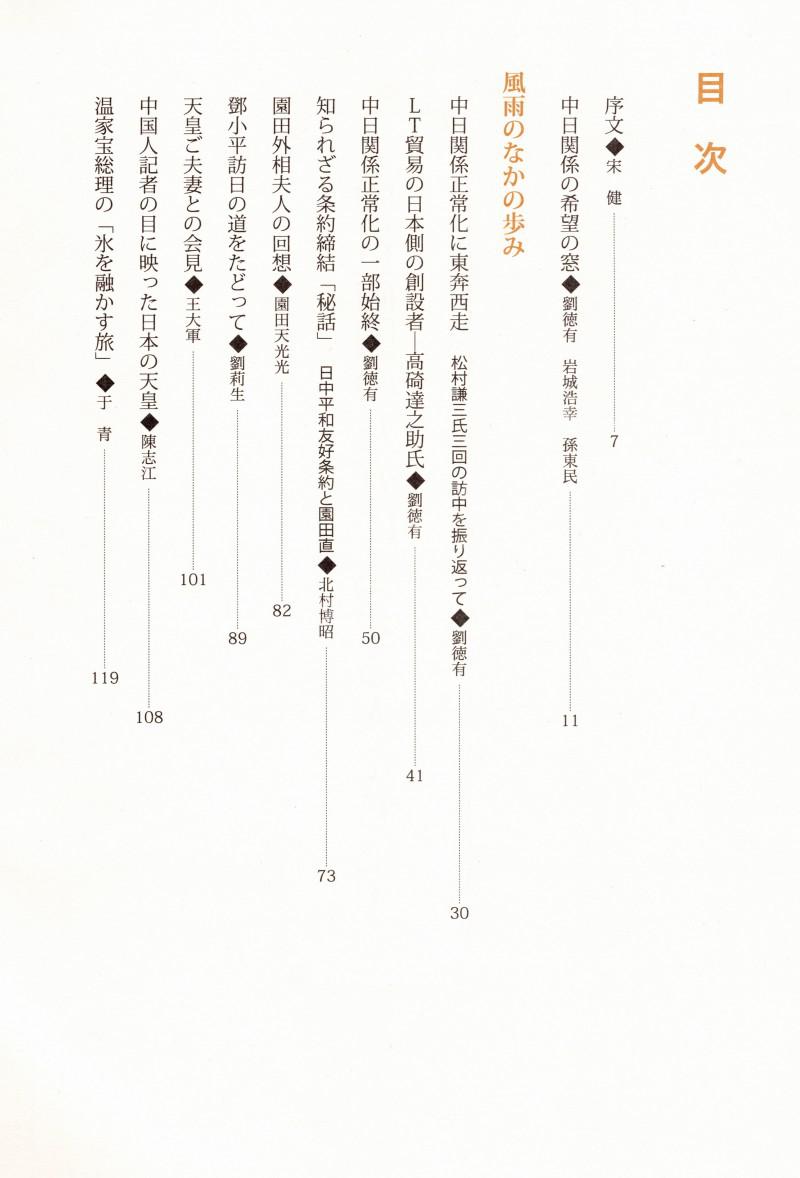 目次
序文◆宋　健 7
中日関係の希望の窓◆劉徳有　岩城浩幸　孫東民 11
風雨のなかの歩み
中日関係正常化に東奔西走　松村謙三氏三回の訪中を振り返って◆劉徳有 30
LT貿易の日本側の創設者―高碕達之助氏◆劉徳有 41
中日関係正常化の一部始終◆劉徳有 50
知られざる条約締結「秘話」　日中平和友好条約と園田直◆北村博昭 73
園田外相夫人の回想◆園田天光光 82
鄧小平訪日の道をたどって◆劉莉生 89
天皇ご夫妻との会見◆王大軍 101
中国人記者の目に映った日本の天皇◆陳志江 108
温家宝総理の「氷を融かす旅」◆于　青 119